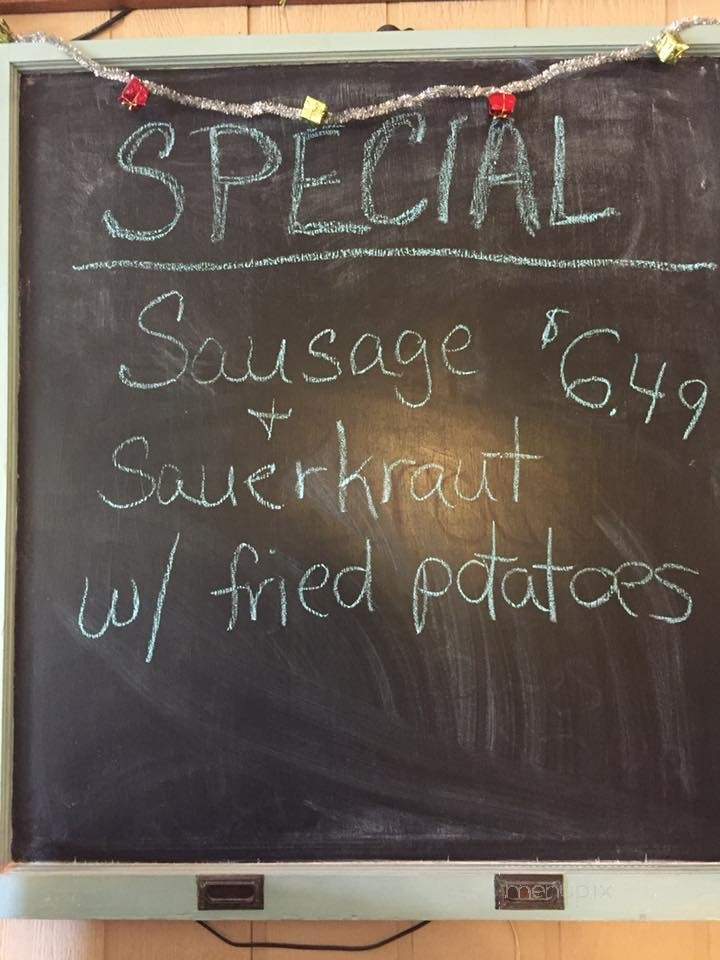 SPECIAL
Sausage $6.49
+
Sauerkraut
w/ fried potatoes
menupix